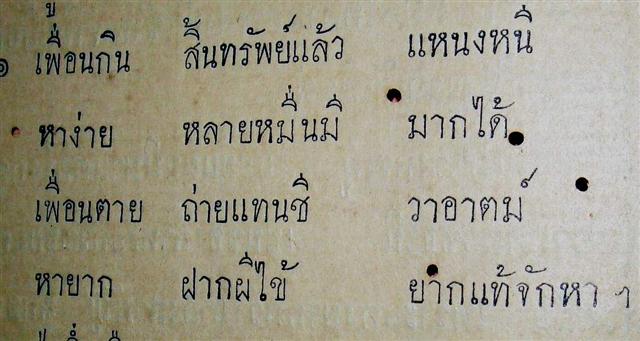 ๑ เพื่อนกิน สิ้นทรัพย์แล้ว แหนงหนี
หาง่าย หลายหมื่นมี มากได้
เพื่อนตาย ถ่ายแทนชี วาอาตม์
หายาก ฝากผีไข้ ยากแท้จักหา ฯ